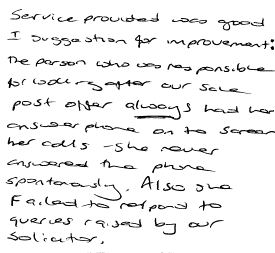 Service provided was good
I suggestion for improvement:
The person who was responsible
for looking after our sale
post offer always had her
answerphone on to screen
her calls - she never
answered the phone
spontaneously. Also she
Failed to respond to
queries raised by our
Solicitor.